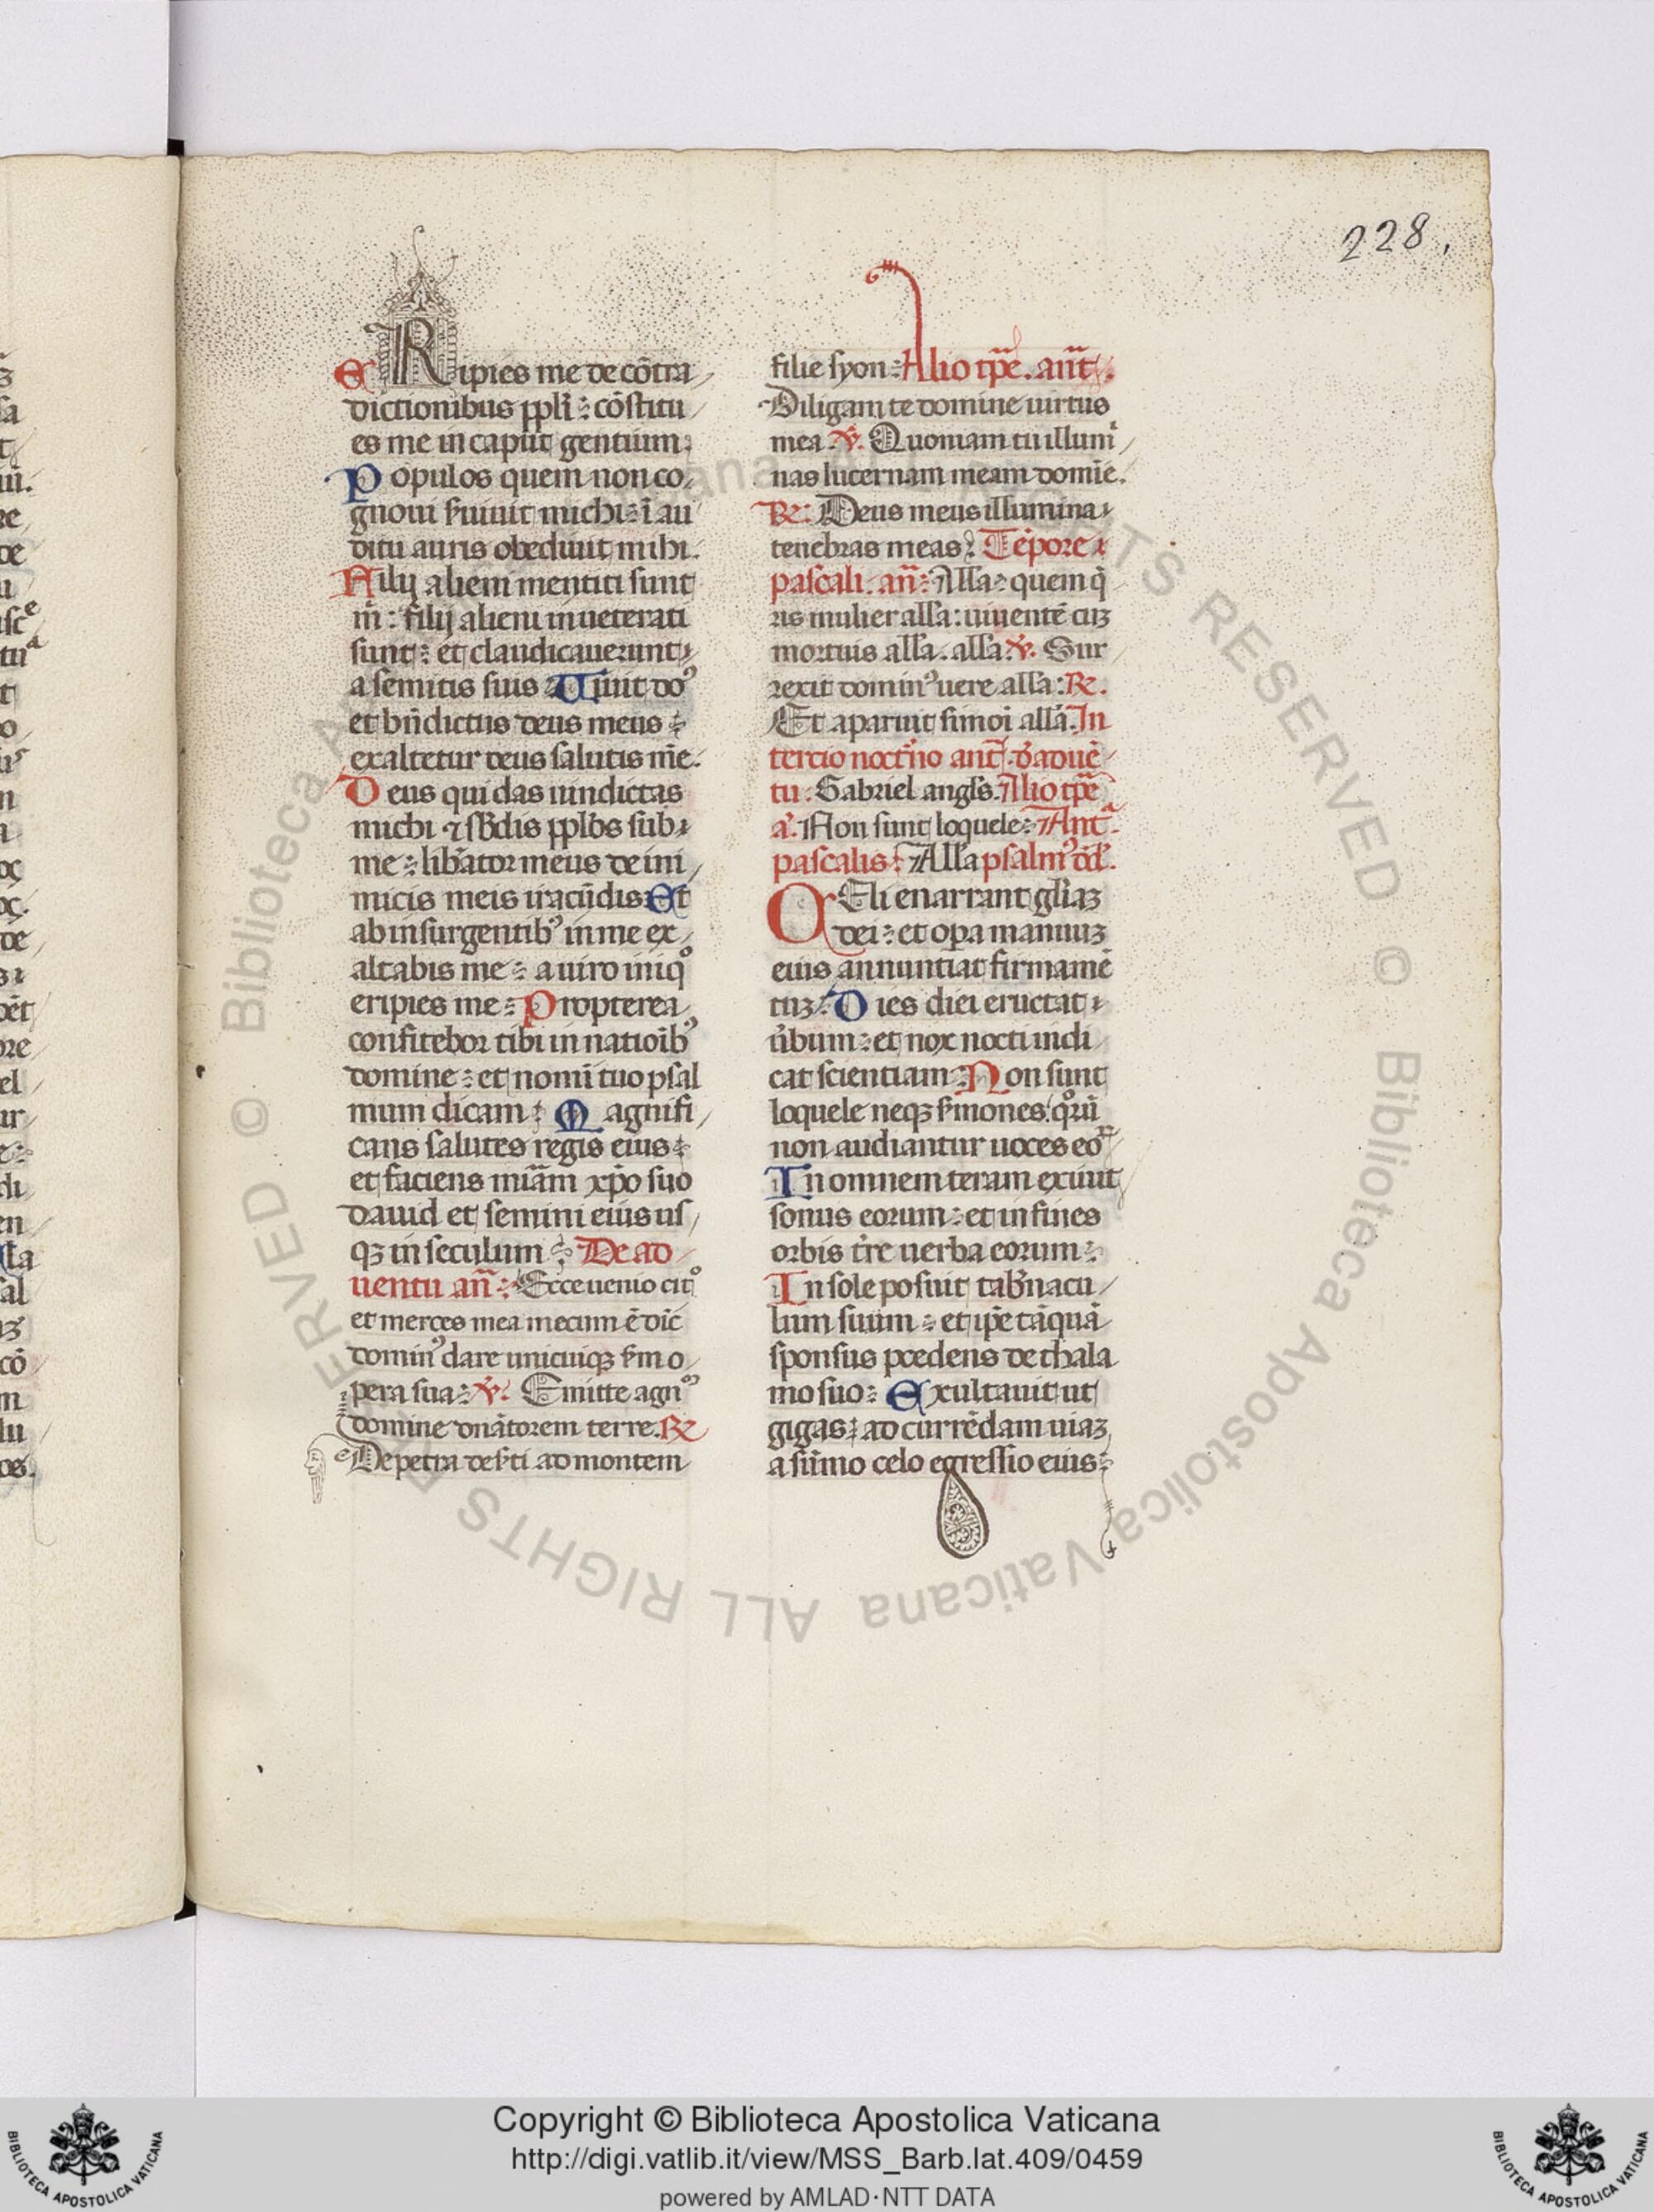 228.
ERipies me de cōtra
dictionibus ppli : cōstitu
es me in caput gentium.
Populos quem non co
gnoui ẜuiuit michi : ī au
ditu auris obediuit mihi.
Filij alieni mentiti sunt
m̄ : filij alieni inueterati
sunt : et claudicauerunt
a semitis suis Uiuit doꝰ
et bn̄dictus deus meus :
exaltetur deus salutis mē.
Deus qui das uindictas
michi ⁊ sb̄dis pplōs sub
me : libator meus de ini
micis meis iracūdis Et
ab insurgentibꝰ in me ex
altabis me : a uiro iniqͦ
eripies me : Propterea
confitebor tibi in natioībꝰ
domine : et nomī tuo psal
mum dicam : Magnifi
cans salutes regis eius :
et faciens mīam xp̄o suo
dauid et semini eius us
qꝫ in seculum : De ad
uentu an̄ : Ecce uenio citͦ
et merces mea mecum ē dic̄
dominꝰ dare unicuiqꝫ ẜm o
pera sua : ℣. Emitte agnꝰ
domine dnātorem terre. ℞
De petra deẜti ad montem
filie syon : Alio tp̄e. ant̄.
Diligam te domine uirtus
mea. ℣. Quoniam tu illumī
nas lucernam meam domīe.
℞: Deus meus illumina
tenebras meas : Tēpore
pascali. an̄ : All̄a : quem q̄
ris mulier all̄a : uiuentē cuꝫ
mortuis all̄a. all̄a. ℣. Sur
rexit dominꝰ uere all̄a : ℞.
Et aparuit simoī all̄a. In
tercio noct̄no ant̄. d̄ aduē
tu : Gabriel angl̄s. Alio tp̄e
a. Non sunt loquele : Ant̄.
pascalis : All̄a psalmꝰ dd̄.
Celi enarrant gl̄iaꝫ
dei : et oꝑa manuuꝫ
eius annuntiat firmamē
tuꝫ : Dies diei eructat
ūbum : et nox nocti indi
cat scientiam : Non sunt
loquele neqꝫ ẜmones : qͦꝝ
non audiantur uoces eoꝝ
In omnem teram exiuit
sonus eorum : et in fines
orbis tr̄e uerba eorum :
In sole posuit tab̄nacu
lum suum : et ip̄e tāquā
sponsus ꝓcedens de thala
mo suo : Exultauit ut
gigas : ad currēdam uiaꝫ
a sūmo celo egressio eius :
© Biblioteca Apostolica Vaticana ALL RIGHTS RESERVED
Copyright © Biblioteca Apostolica Vaticana
http://digi.vatlib.it/view/MSS_Barb.lat.409/0459
powered by AMLAD·NTT DATA
BIBLIOTECA APOSTOLICA VATICANA
BIBLIOTECA APOSTOLICA VATICANA